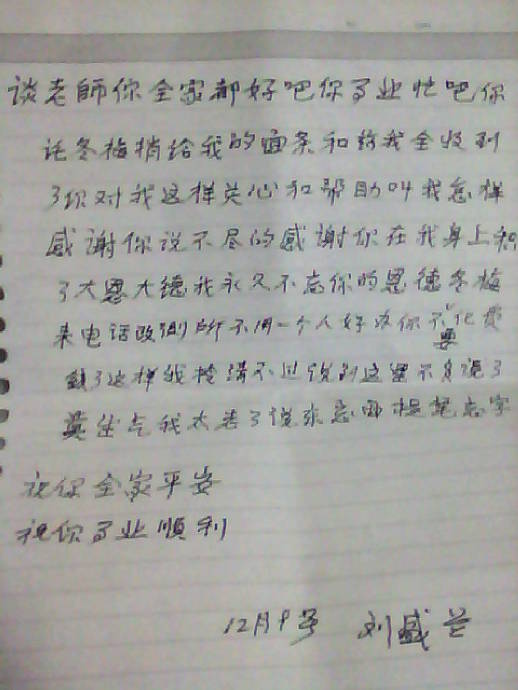 谈老師你全家都好吧你了业忙吧你
託冬梅捎给我的面条和药我全收到
了你对我这样关心和帮助叫我怎样
感谢你说不尽的感谢你在我身上积
了大恩大德我永久不忘你的恩德冬梅
来电话改側所不用一个人好办你不要化费
钱了这样我接清不过说到这里不多说了
我太老了说东忘西提笔忘字
祝你全家平安
祝你了业順利
12月9号 刘盛兰